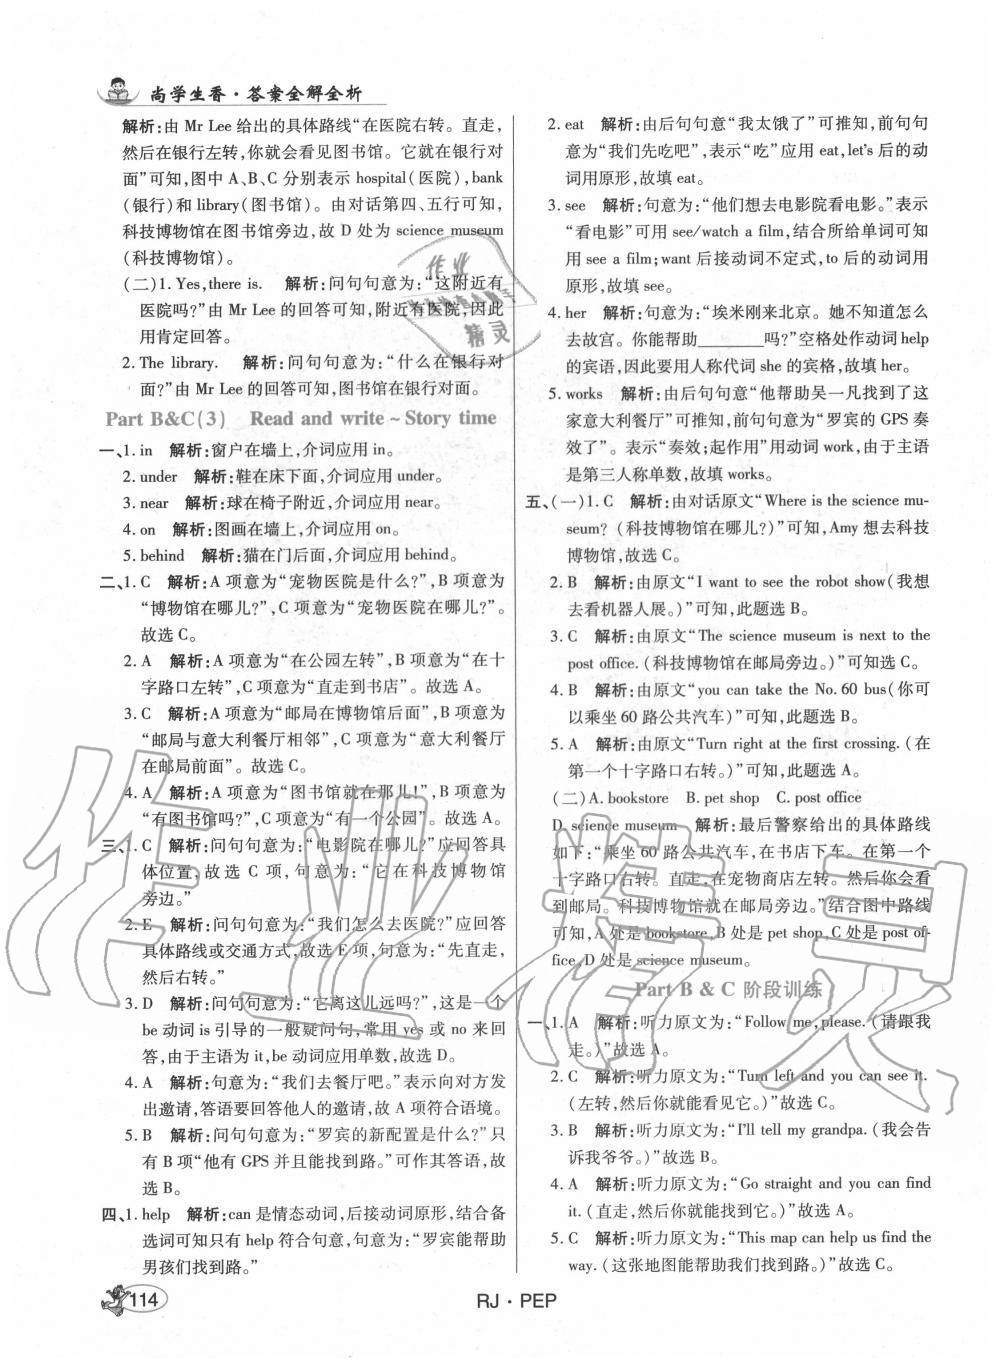 尚学生香·答案全解全析
解析:由 Mr Lee 给出的具体路线“在医院右转。直走,
然后在银行左转,你就会看见图书馆。它就在银行对
面”可知,图中 A、B、C 分别表示 hospital(医院),bank
(银行)和 library(图书馆)。由对话第四、五行可知,
科技博物馆在图书馆旁边,故 D 处为 science museum
(科技博物馆)。
(二)1. Yes,there is. 解析:问句句意为:“这附近有
医院吗?”由 Mr Lee 的回答可知,附近有医院,因此
用肯定回答。
2. The library. 解析:问句句意为:“什么在银行对
面?”由 Mr Lee 的回答可知,图书馆在银行对面。
Part B&C(3) Read and write ~ Story time
一、1. in 解析:窗户在墙上,介词应用 in。
2. under 解析:鞋在床下面,介词应用 under。
3. near 解析:球在椅子附近,介词应用 near。
4. on 解析:图画在墙上,介词应用 on。
5. behind 解析:猫在门后面,介词应用 behind。
二、1. C 解析:A 项意为“宠物医院是什么?”,B 项意为
“博物馆在哪儿?”,C 项意为“宠物医院在哪儿?”。
故选 C。
2. A 解析:A 项意为“在公园左转”,B 项意为“在十
字路口左转”,C 项意为“直走到书店”。故选 A。
3. C 解析:A 项意为“邮局在博物馆后面”,B 项意为
“邮局与意大利餐厅相邻”,C 项意为“意大利餐厅
在邮局前面”。故选 C。
4. A 解析:A 项意为“图书馆就在那儿!”,B 项意为
“有图书馆吗?”,C 项意为“有一个公园”。故选 A。
三、1. C 解析:问句句意为:“电影院在哪儿?”应回答具
体位置,故选 C 项,句意为:“它在科技博物馆
旁边。”
2. E 解析:问句句意为:“我们怎么去医院?”应回答
具体路线或交通方式,故选 E 项,句意为:“先直走,
然后右转。”
3. D 解析:问句句意为:“它离这儿远吗?”,这是一个
be 动词 is 引导的一般疑问句,常用 yes 或 no 来回
答,由于主语为 it,be 动词应用单数,故选 D。
4. A 解析:句意为:“我们去餐厅吧。”表示向对方发
出邀请,答语要回答他人的邀请,故 A 项符合语境。
5. B 解析:问句句意为:“罗宾的新配置是什么?”只
有 B 项“他有 GPS 并且能找到路。”可作其答语,故
选 B。
四、1. help 解析:can 是情态动词,后接动词原形,结合备
选词可知只有 help 符合句意,句意为:“罗宾能帮助
男孩们找到路。”
2. eat 解析:由后句句意“我太饿了”可推知,前句句
意为“我们先吃吧”,表示“吃”应用 eat,let's 后的动
词用原形,故填 eat。
3. see 解析:句意为:“他们想去电影院看电影。”表示
“看电影”可用 see/watch a film,结合所给单词可知
用 see a film;want 后接动词不定式,to 后的动词用
原形,故填 see。
4. her 解析:句意为:“埃米刚来北京。她不知道怎么
去故宫。你能帮助________吗?”空格处作动词 help
的宾语,因此要用人称代词 she 的宾格,故填 her。
5. works 解析:由后句句意“他帮助吴一凡找到了这
家意大利餐厅”可推知,前句句意为“罗宾的 GPS 奏
效了”。表示“奏效;起作用”用动词 work,由于主语
是第三人称单数,故填 works。
五、(一)1. C 解析:由对话原文“Where is the science mu-
seum?(科技博物馆在哪儿?)”可知,Amy 想去科技
博物馆,故选 C。
2. B 解析:由原文“I want to see the robot show(我想
去看机器人展。)”可知,此题选 B。
3. C 解析:由原文“The science museum is next to the
post office.(科技博物馆在邮局旁边。)”可知选 C。
4. B 解析:由原文“you can take the No. 60 bus(你可
以乘坐 60 路公共汽车)”可知,此题选 B。
5. A 解析:由原文“Turn right at the first crossing.(在
第一个十字路口右转。)”可知,此题选 A。
(二)A. bookstore B. pet shop C. post office
D. science museum 解析:最后警察给出的具体路线
如下:“乘坐 60 路公共汽车,在书店下车。在第一个
十字路口右转。直走,在宠物商店左转。然后你会看
到邮局。科技博物馆就在邮局旁边。”结合图中路线
可知,A 处是 bookstore,B 处是 pet shop,C 处是 post of-
fice,D 处是 science museum。
Part B & C 阶段训练
一、1. A 解析:听力原文为:“Follow me,please.(请跟我
走。)”故选 A。
2. C 解析:听力原文为:“Turn left and you can see it.
(左转,然后你就能看见它。)”故选 C。
3. B 解析:听力原文为:“I'll tell my grandpa.(我会告
诉我爷爷。)”故选 B。
4. A 解析:听力原文为:“Go straight and you can find
it.(直走,然后你就能找到它。)”故选 A。
5. C 解析:听力原文为:“This map can help us find the
way.(这张地图能帮助我们找到路。)”故选 C。
114
RJ·PEP
作业精灵